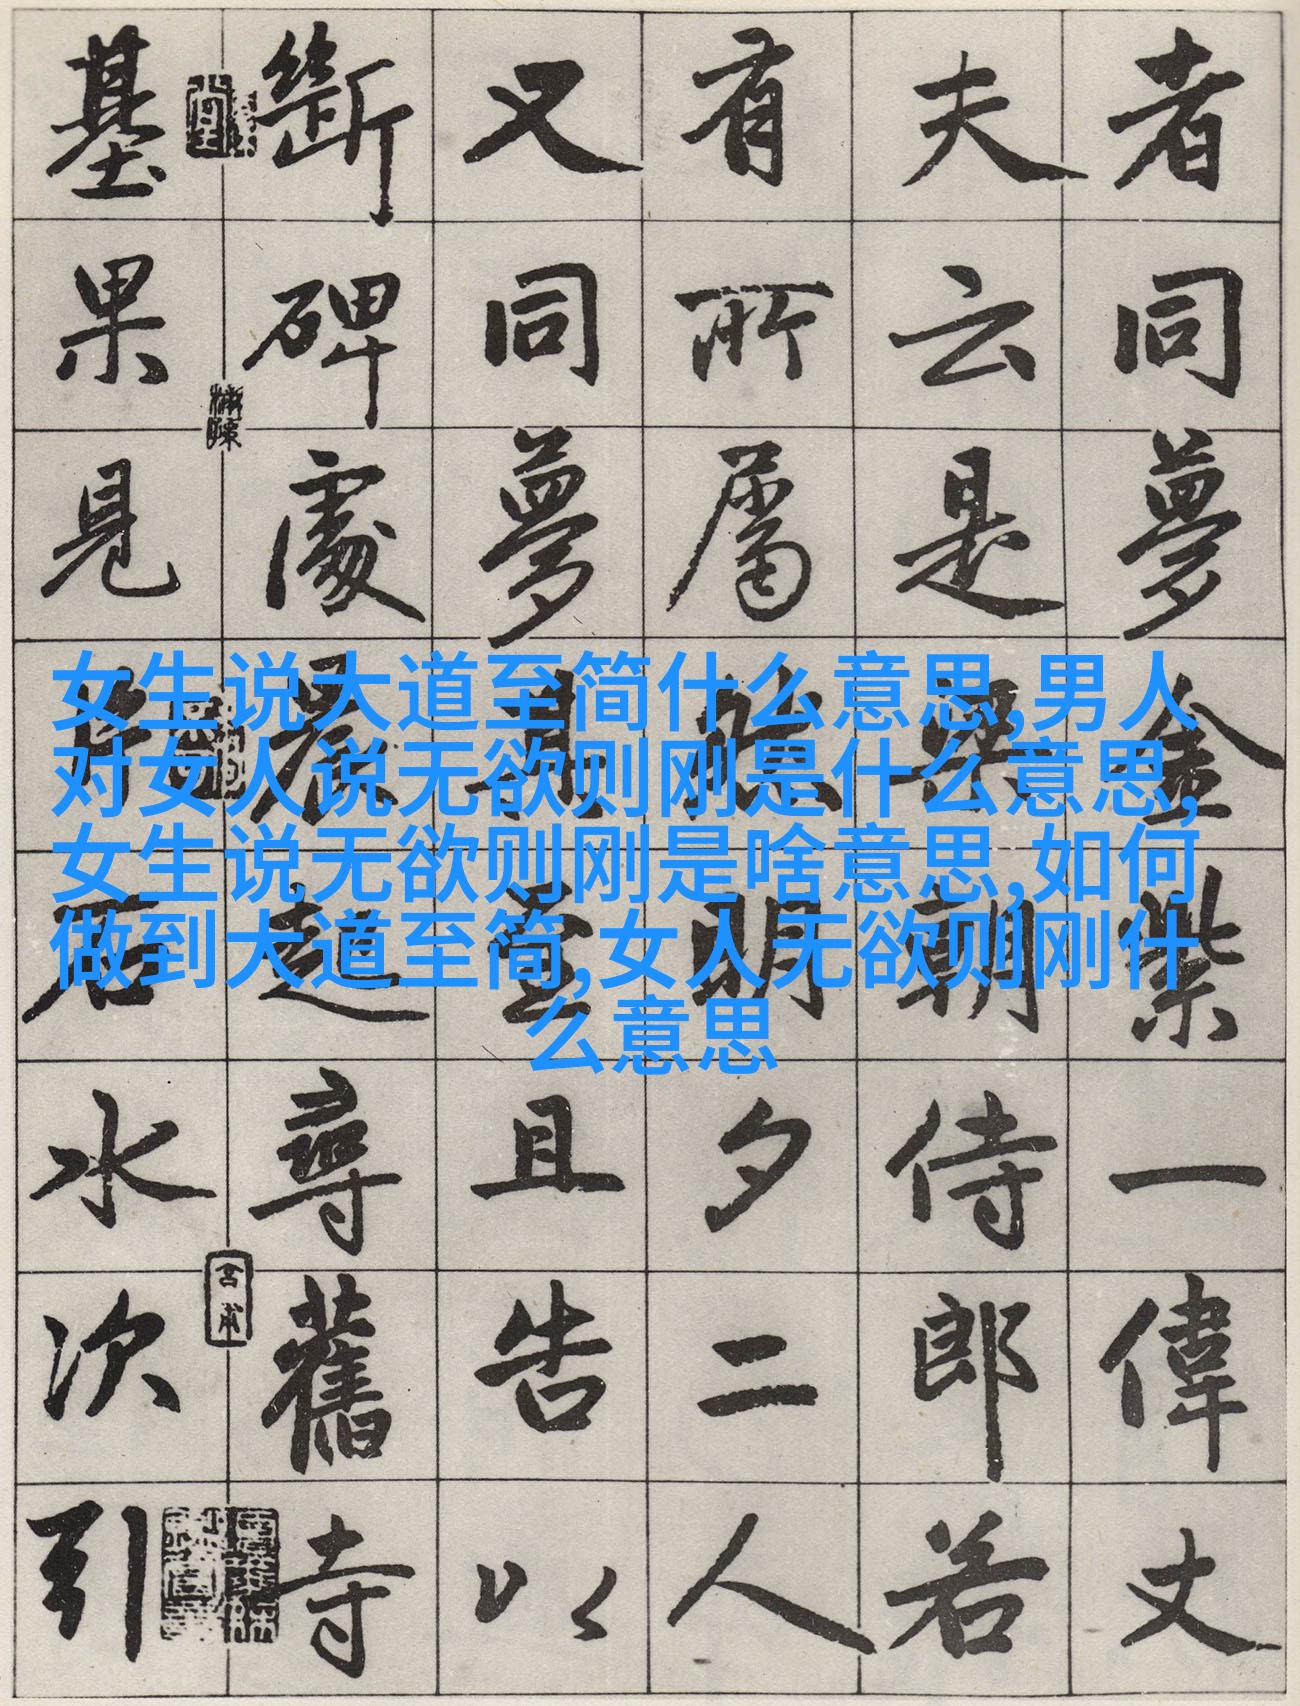 者同夢金紫一偉丈
夫云是朝侍郎若
有所屬明夕二人
又同夢且告以
斷碑處晨起尋舊寺
基果見石水次引
女生说大道至简什么意思,男人
对女人说无欲则刚是什么意思,
女生说无欲则刚是啥意思,如何
做到大道至简,女人无欲则刚什
么意思